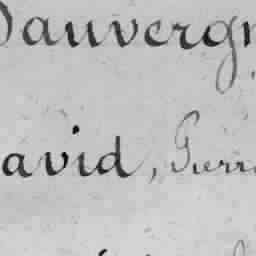 Dauvergn
avid, Pierr